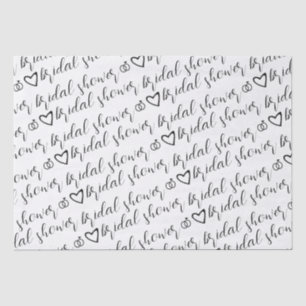 bridal shower
bridal shower bridal shower
bridal shower bridal shower
bridal shower bridal shower
bridal shower bridal shower
bridal shower bridal shower
bridal shower bridal shower
bridal shower bridal shower
bridal shower